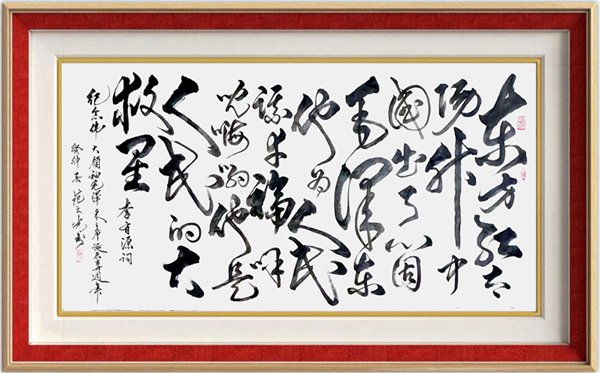 东方红太
阳升中
国出了个
毛泽东
他为人民
谋幸福呼
儿嗨哟他是
人民的大
救星 李有源词
纪念伟大领袖毛泽东主席诞辰周年
癸卯春 范书